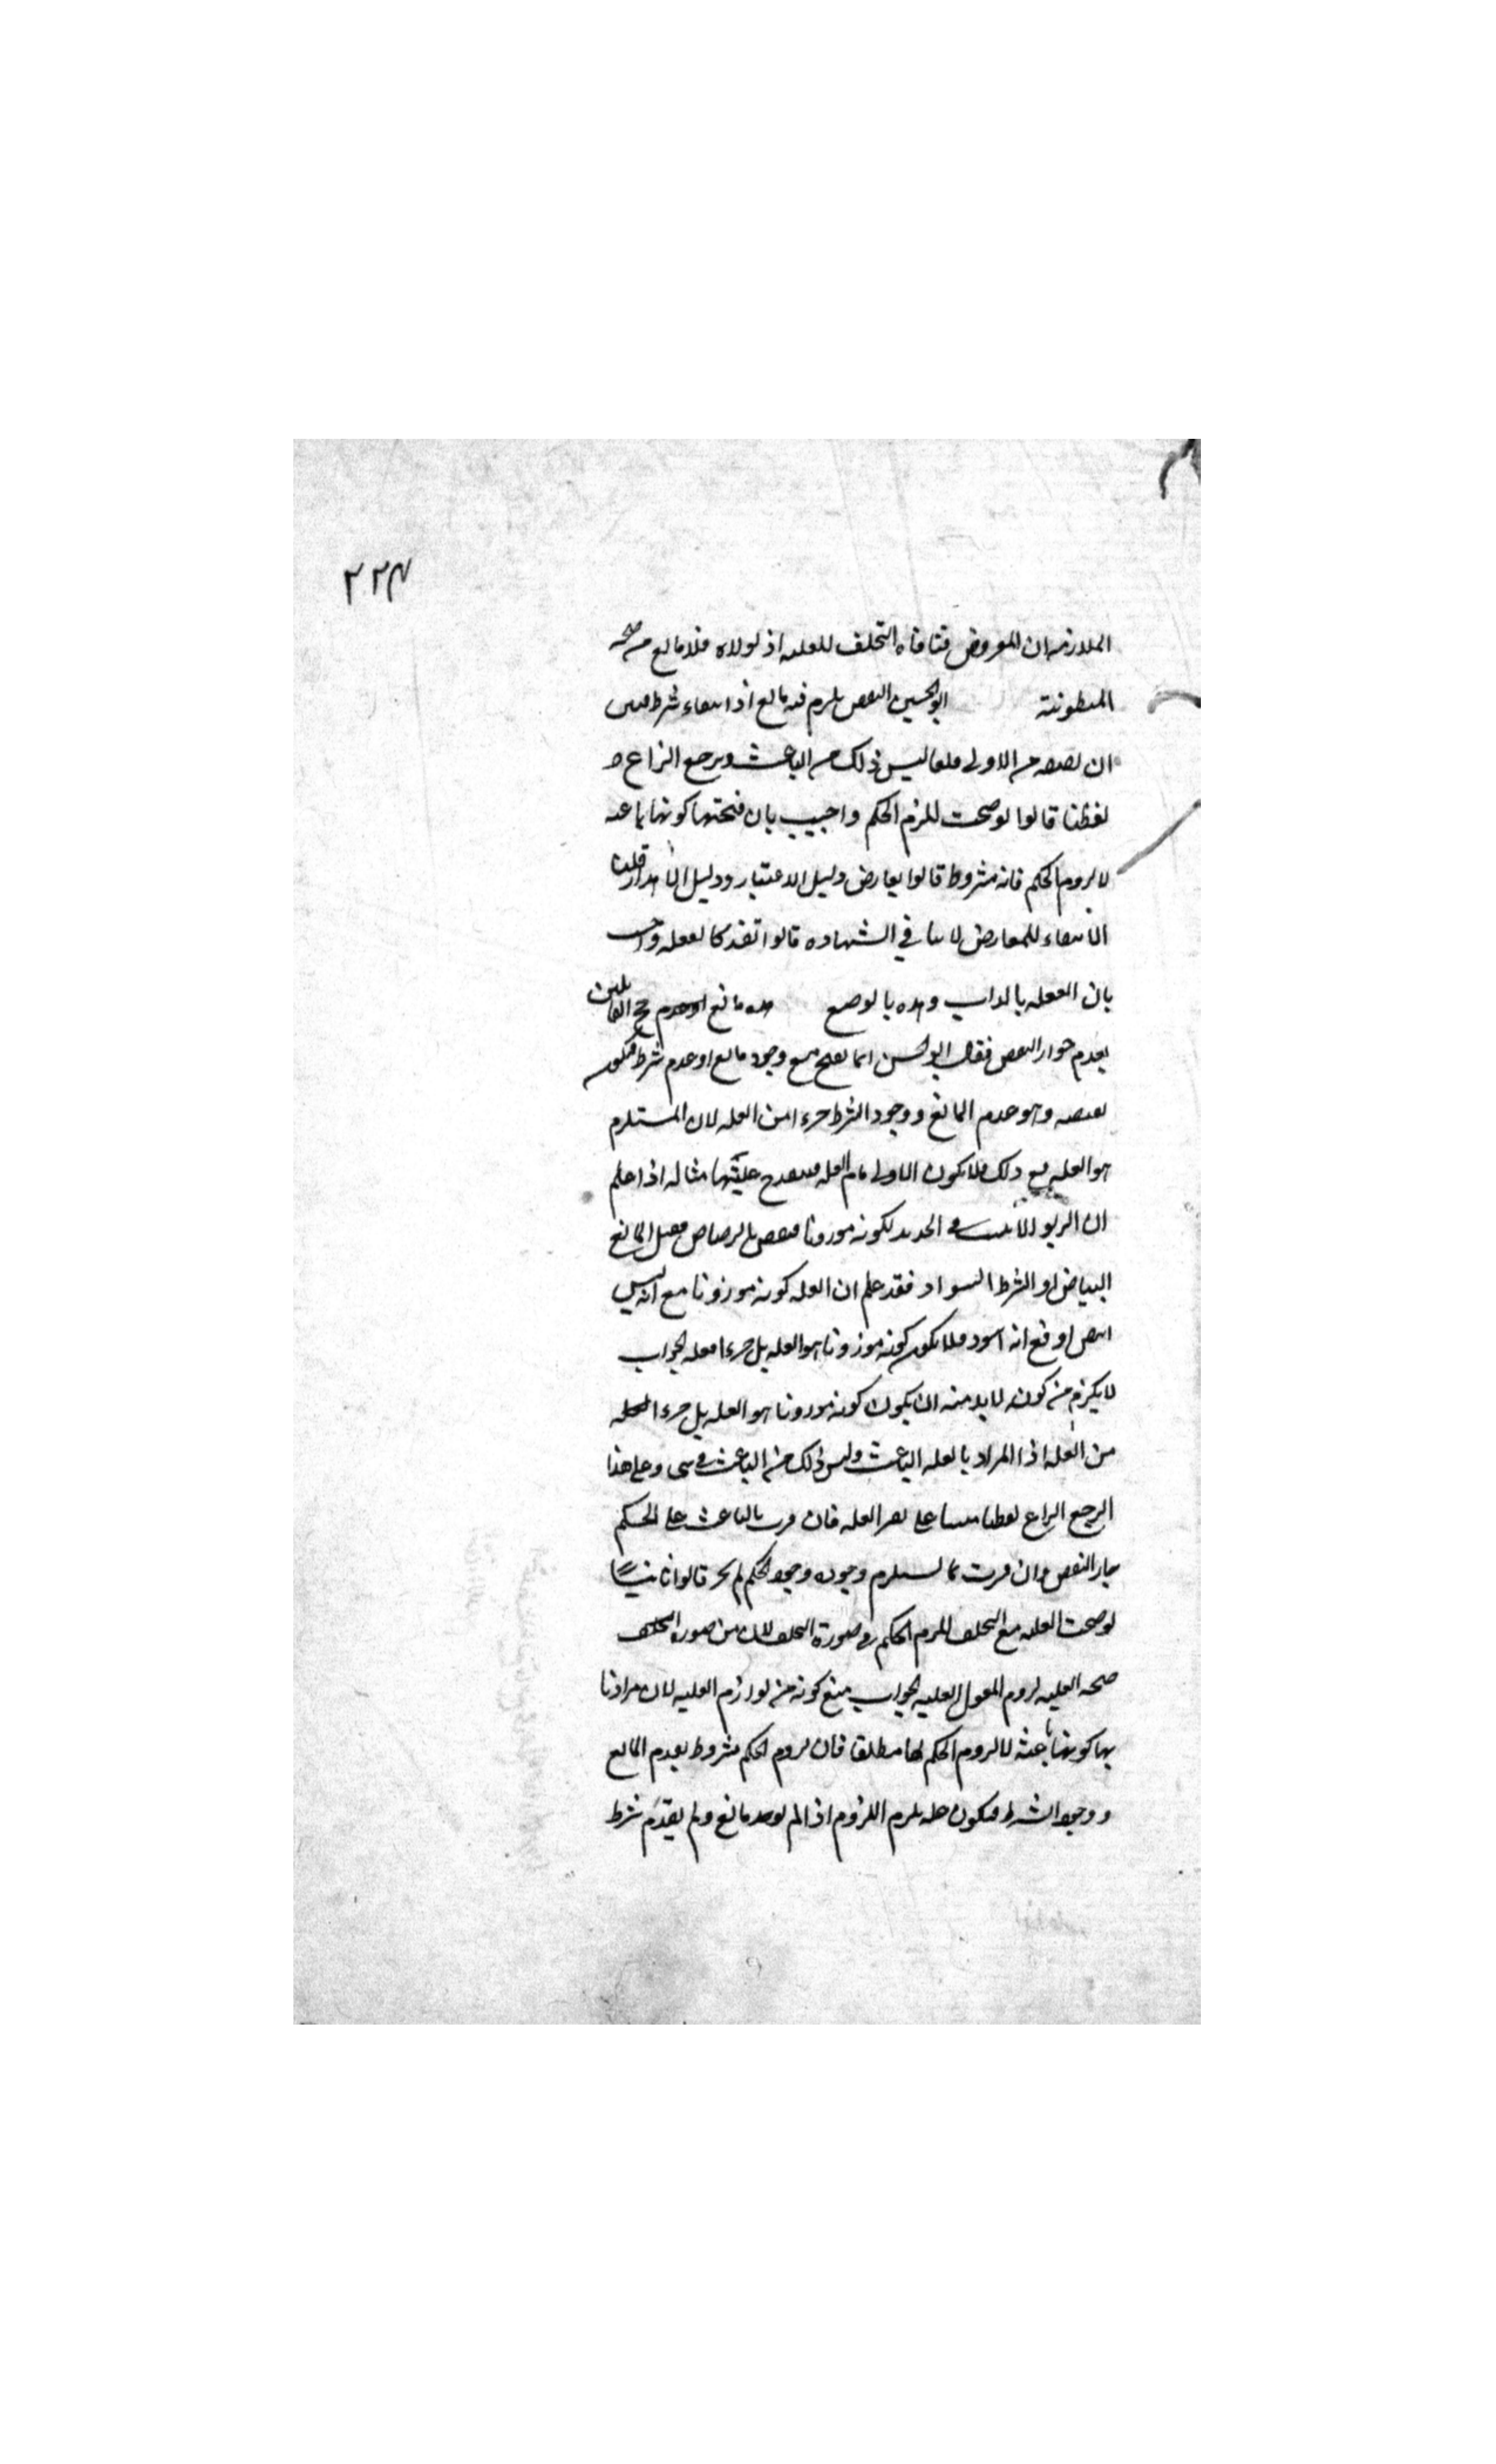 ٢٢٤
الملازمه ان المفروض منافاه التخلف للعليه اذ لولاه فلا مانع من صحه
المظنونة ابو الحسين النقض يلزم فيه مانع او انتفاء شرط فتبين
ان نقيضه من الاولى قلنا ليس ذلك من الباعث ويرجع النزاع
لفظيا قالوا لو صحت للزم الحكم واجيب بان صحتها كونها باعثه
لا لزوم الحكم فانه مشروط قالوا تعارض دليل الاعتبار ودليل الاهدار قلنا
الانتفاء للمعارض لا ينافي الشهاده قالوا تفسد كالعقليه واجيب
بان العقليه بالذات وهذه بالوضع هذه مانع او عدم حجج القائلين
بعدم جواز النقض فقال ابو الحسين انما يصح مع وجود مانع او عدم شرط فيكون
نقيضه وهو عدم المانع ووجود الشرط جزءا من العله لان المستلزم
هو العله مع ذلك فلا يكون الاولى تمام العله فيقدح عليتها مثاله اذا علم
ان الربو انما يثبت في الحديد لكونه موزونا فنقض بالرصاص فقيل المانع
البياض او الشرط السواد فقد علم ان العله كونه موزونا مع انه ليس
ابيض او مع انه اسود فلا يكون كونه موزونا هو العله بل جزءا الجواب
لا يلزم من كونه لا بد منه ان يكون كونه موزونا هو العله بل جزءا
من العله اذ المراد بالعله الباعث وليس ذلك من الباعث في شى وعلى هذا
يرجع النزاع لفظيا مبنيا على تفسير العله فان فسرت بالباعث على الحكم
جاز النقض وان فسرت بما يستلزم وجوده وجود الحكم لم يجز قالوا ثانيا
لو صحت العله مع التخلف للزم الحكم في صورة التخلف لان من ضرورة
صحه العليه لزوم المعلول العليه الجواب منع كونه من لوازم العليه لان مرادنا
بها كونها باعثة لا لزوم الحكم لها مطلقا فان لزوم الحكم مشروط بعدم المانع
ووجود الشرط فيكون يلزم اللزوم اذا لم يوجد مانع ولم يعدم شرط